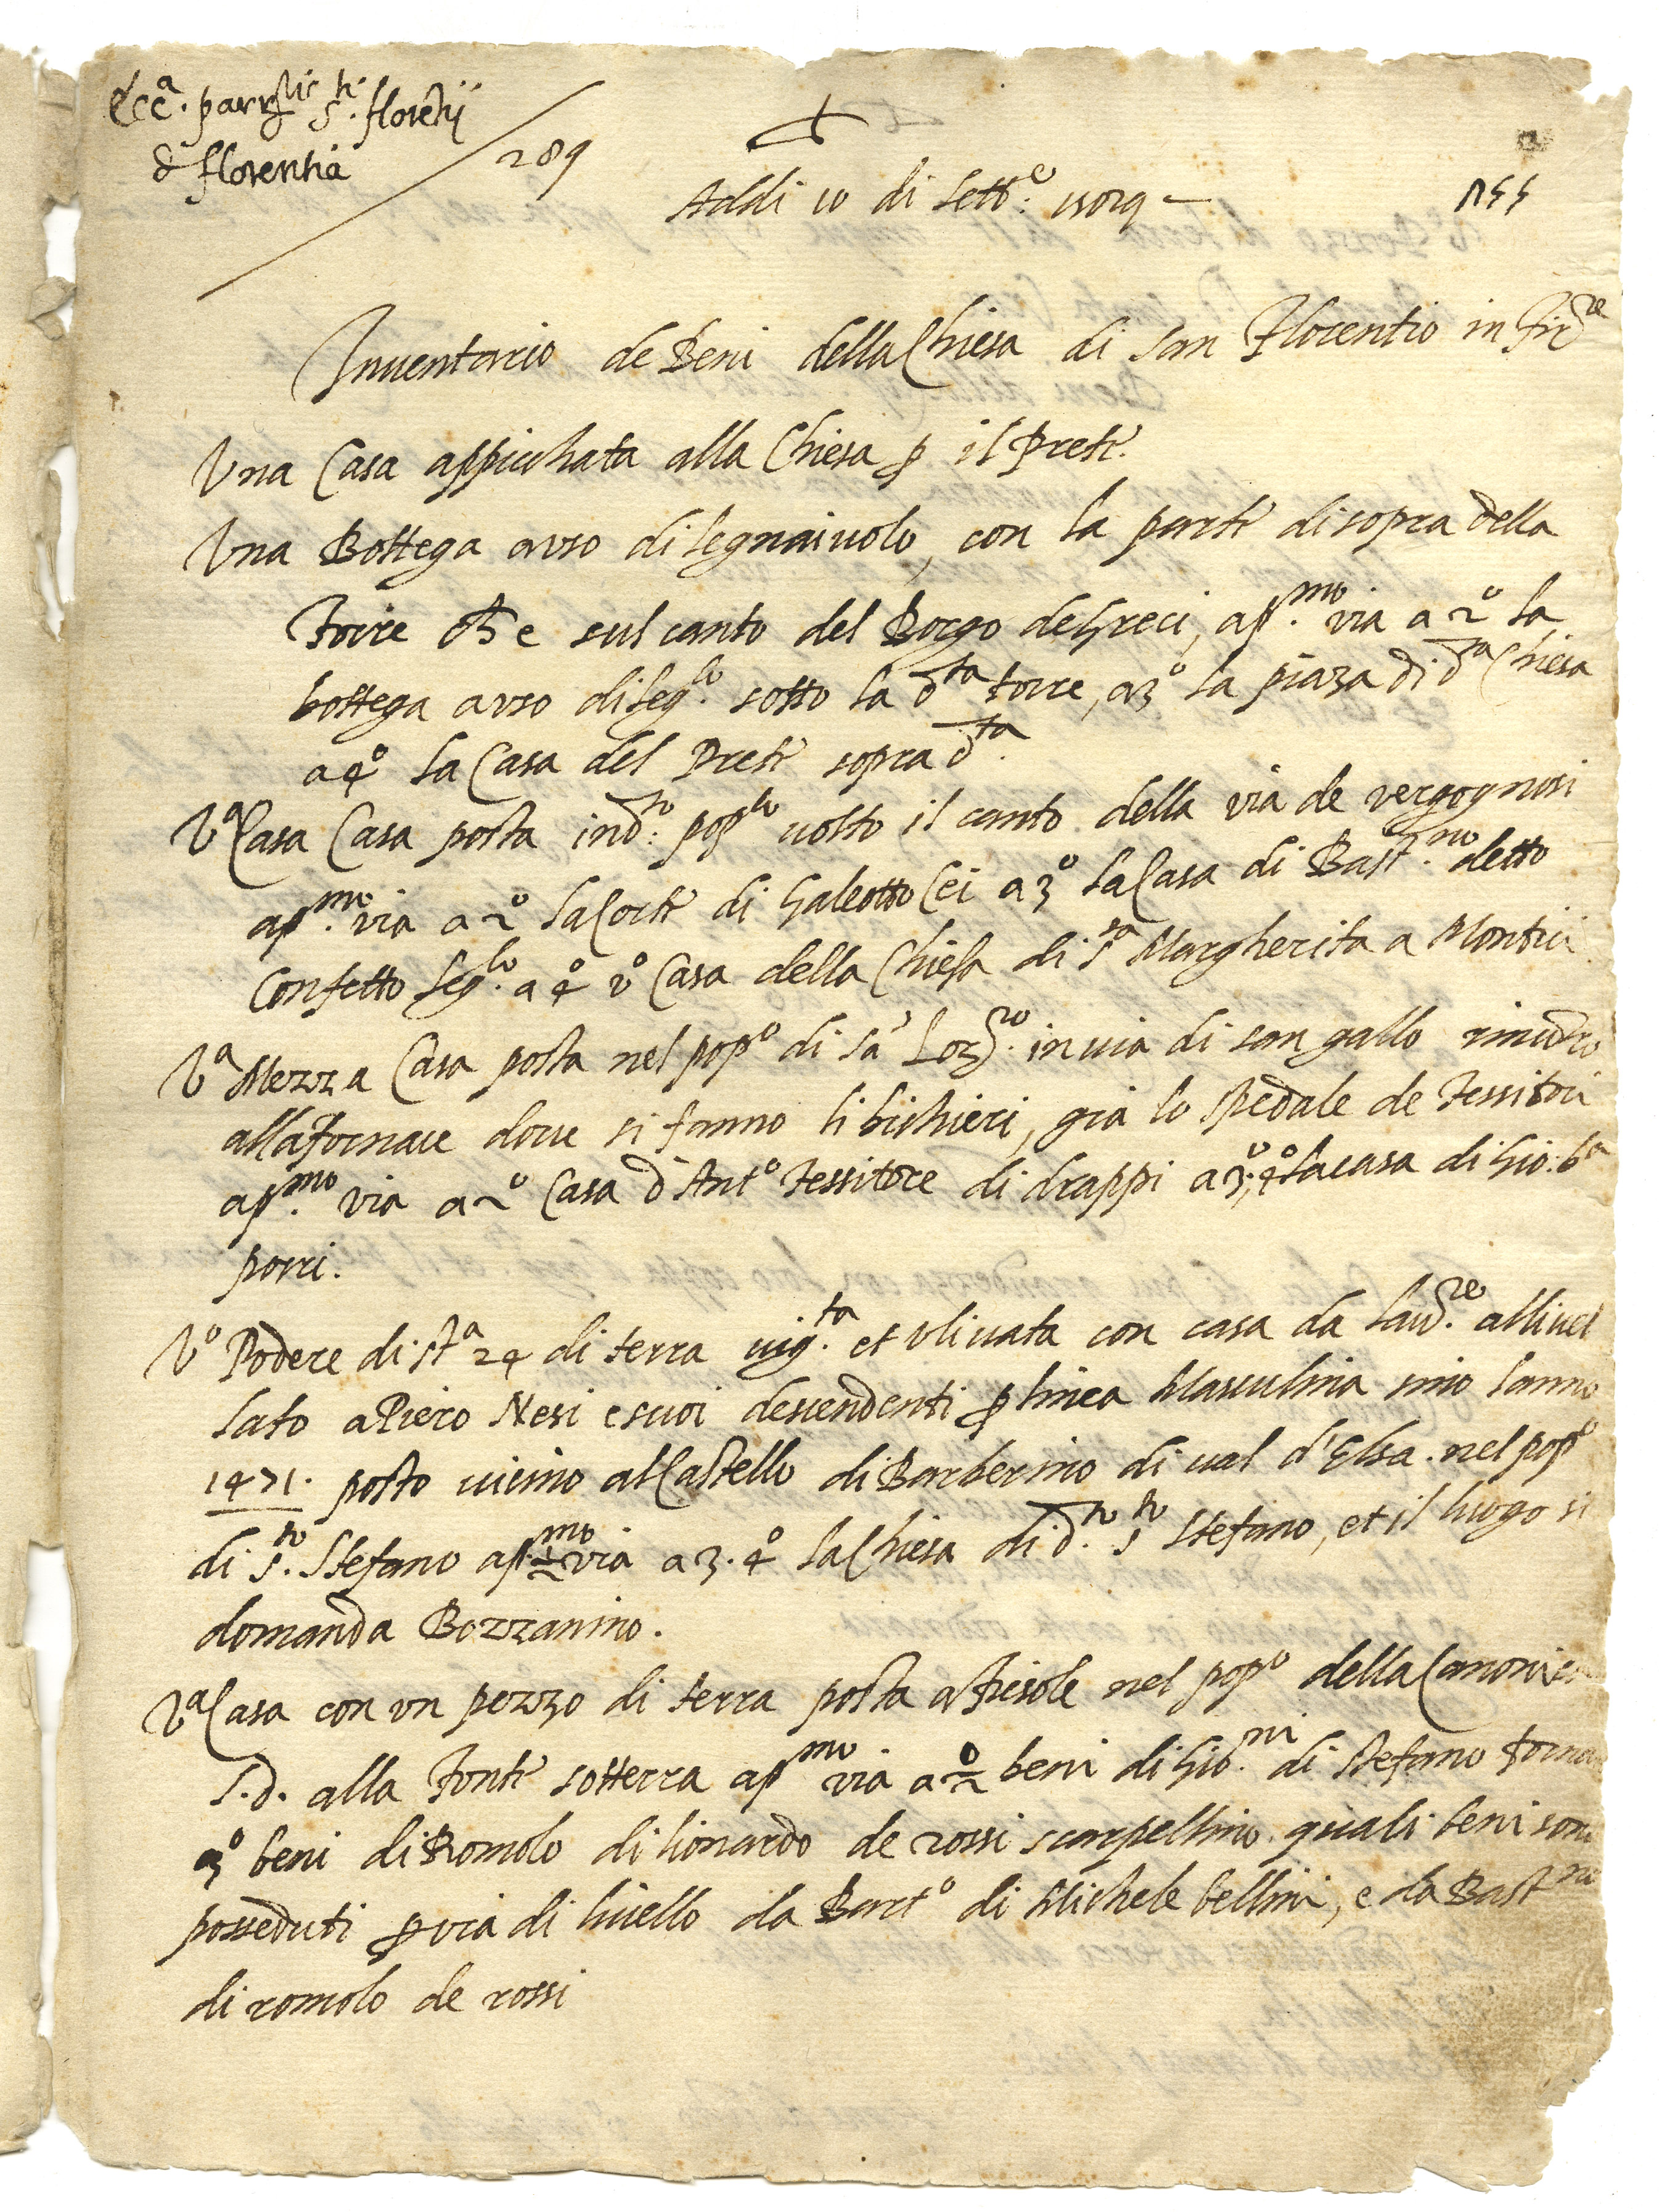 Ecc.a parr.lis S.ti florētij
d florentia
289
Addi 10 di Sett.e
155
Inuentario de Beni della Chiesa di San Florentio in Fir.ze
Vna Casa appicchata alla Chiesa p il Prete.
Vna Bottega auso di legnaiuolo, con la parte di sopra della
Torre ch e sul canto del Borgo deGreci, ap.mo via a 2o la
bottega a uso di leg.lo sotto la d.ta torre, a3o la piaza di d.ta Chiesa
a 4o la Casa del Prete sopra d.ta
Va Casa Casa posta in d.to pop.lo uolto il canto della via de vergognosi
ap.mo via a 2o la Corte di Galeotto Cei a 3o la Casa di Bast.no detto
Confetto leg.lo a 4o vo Casa della Chiesa di s.ta Margherita a Montici
Va Mezza Casa posta nel pop.o di Sā Lorz.o in uia di san gallo
alla fornace doue si fanno li bichieri, gia lo spedale de Tessitori
ap.mo via a 2o Casa d Ant.o Tessitore di drappi a 3o, 4o la casa di Gio: b.a
porri.
Vo Podere di st.a 24 di terra uig.ta et vliuata con casa da lau.re alliuel
lato a Piero Nesi e suoi descendenti p linea Masculina sino lanno
1471. posto uicino al Castello di Barberino di ual d'Elsa. nel pop.o
di S.to Stefano ap.mo 2 via a 3. 4o la Chiesa di d.to s.to Stefano, et il luogo si
domanda Bozzanino.
Va Casa con vn pezzo di terra posta a Fiesole nel pop.o della Canonica
S.d. alla Fonte sotterra ap.mo via a 2o beni di Gio.ni di Stefano
3o beni di Romolo di lionardo de rossi scarpellino. quali beni sono
posseduti p via di liuello da Bart.o di Michele bellini, e da Bast.no
di romolo de rossi